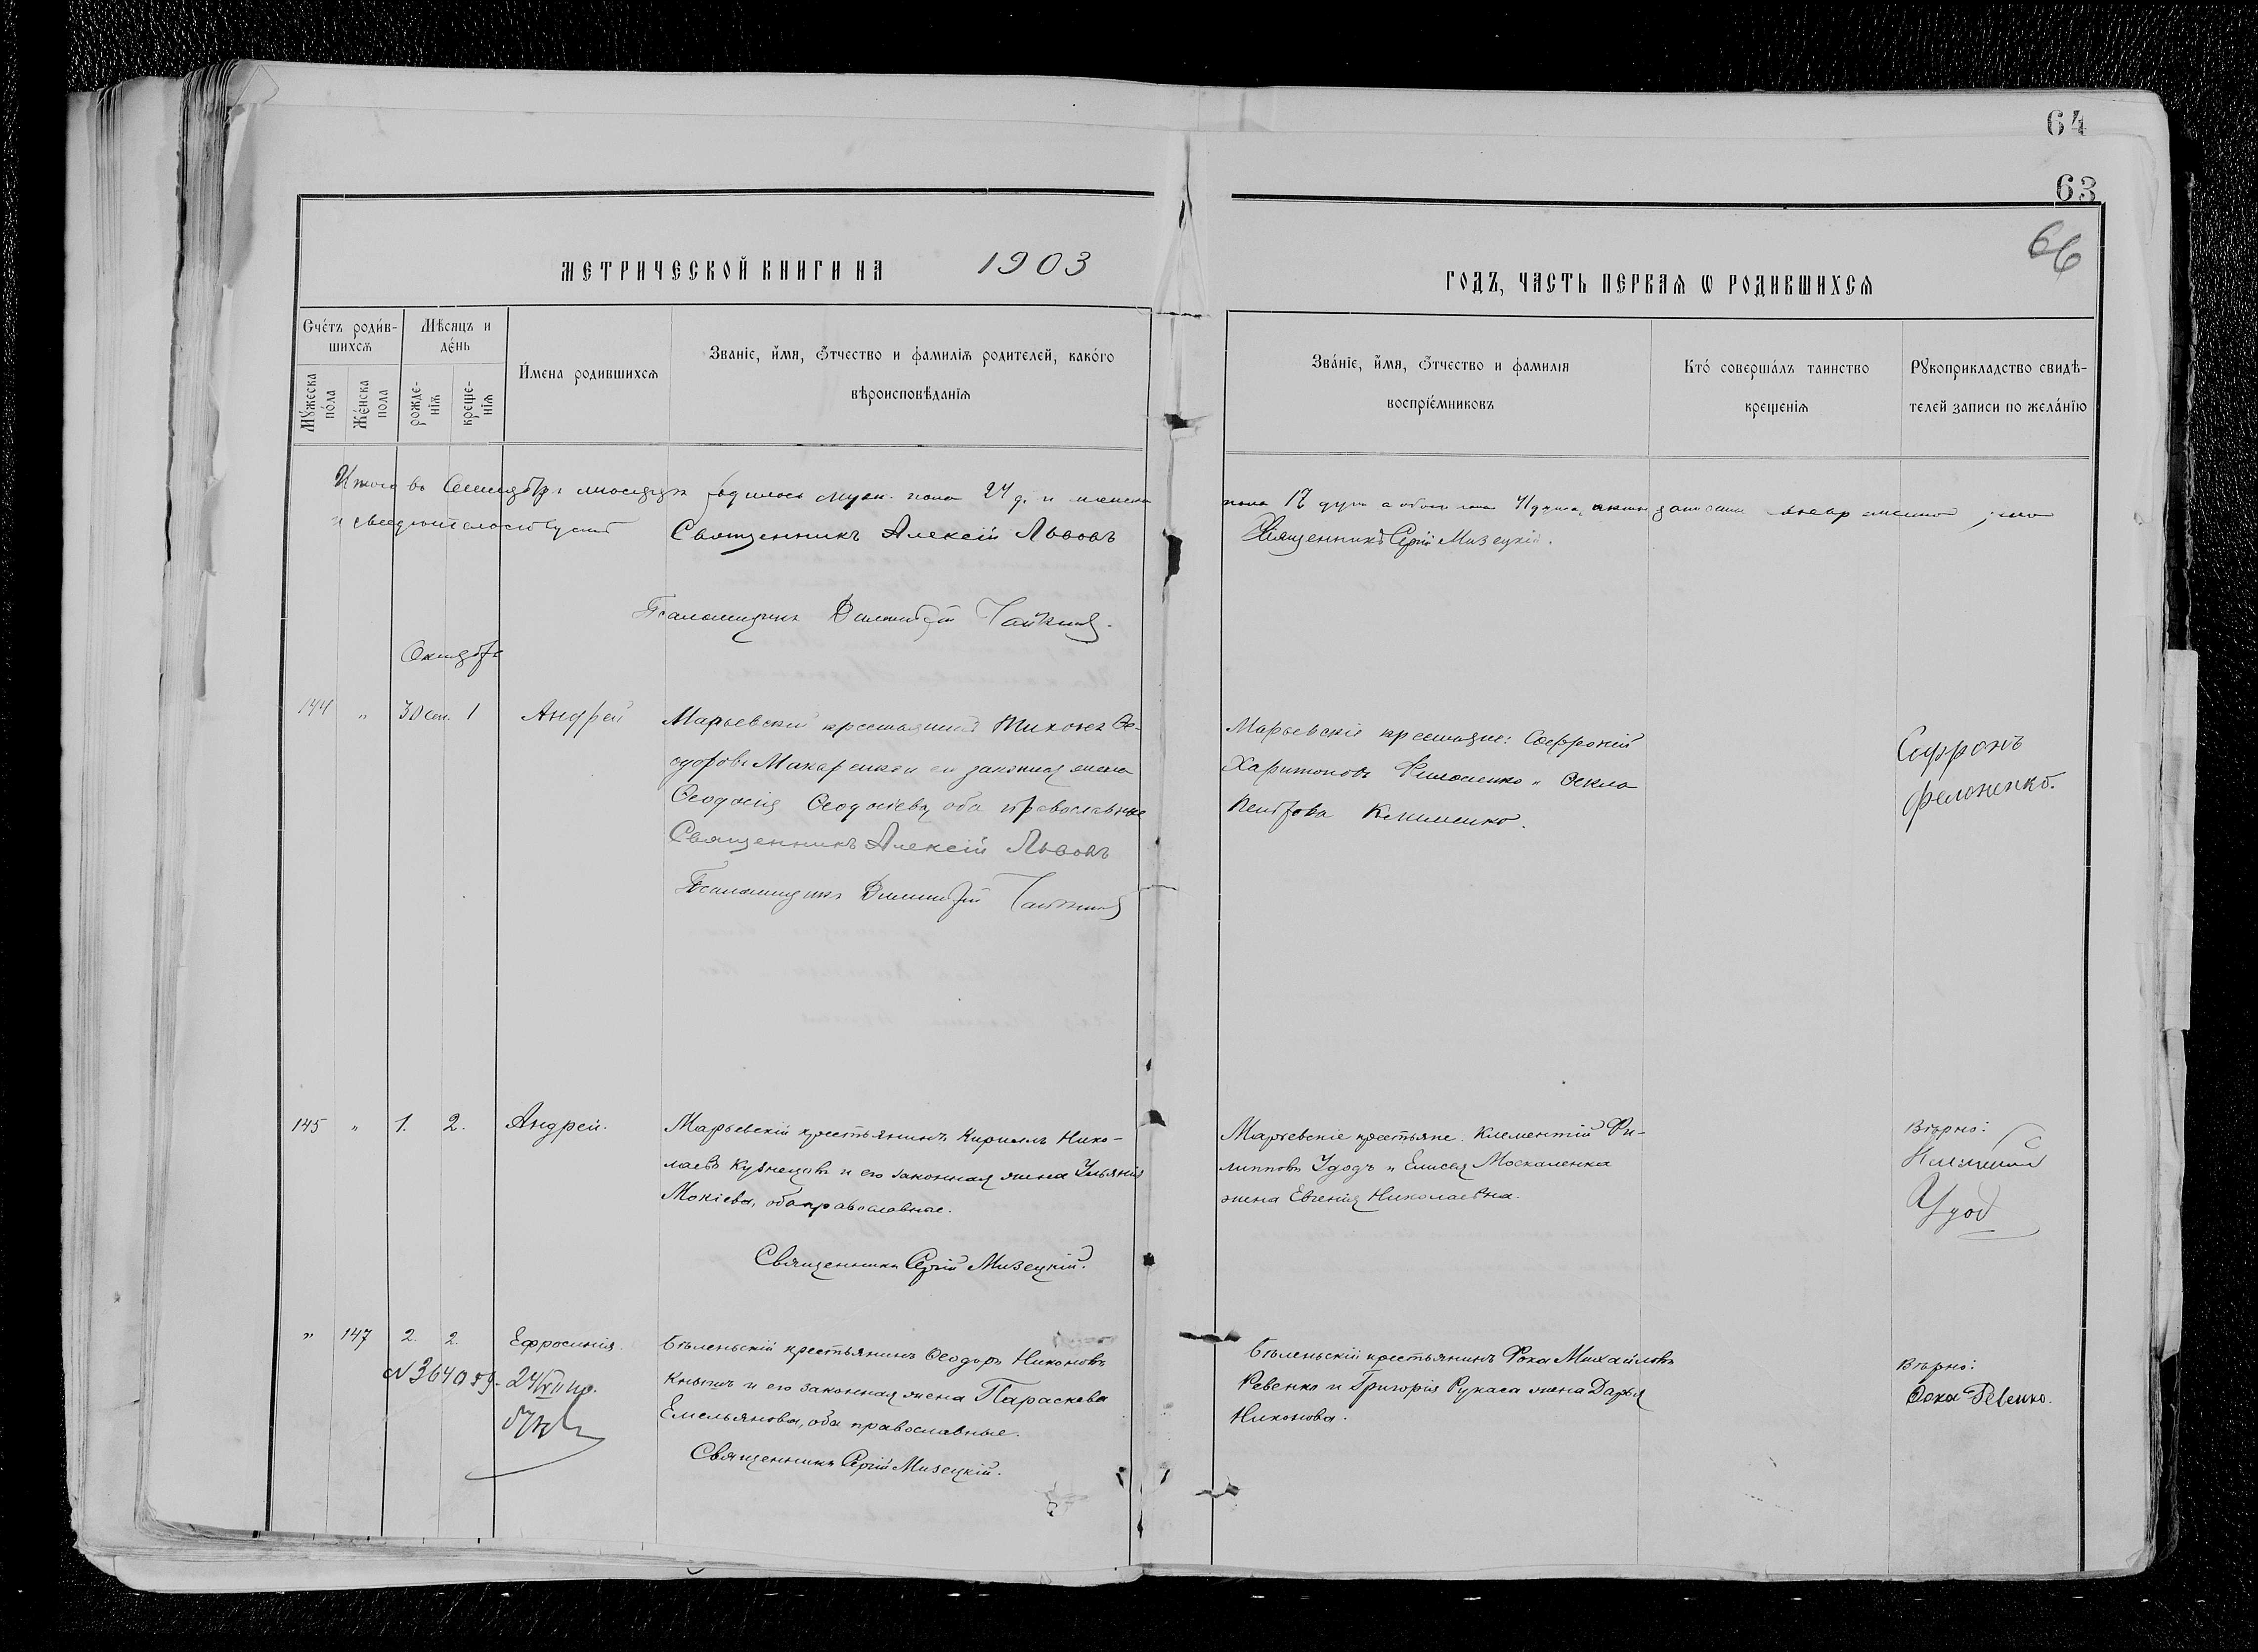 64
63
66
МЕТРИЧЕСКОЙ КНИГИ НА 1903
ГОДЪ, ЧАСТЬ ПЕРВАѦ Ѡ РОДИВШИХСѦ
Сче́тъ роди́в-
шихсѧ
Мꙋжеска
по́ла
Же́нска
пола
Мѣ́сяцъ и
де́нь
рожде-
нїѧ
креще-
нїѧ
И҆́мена родившихсѧ
Званїе, и҆́мя, ѻ҆́тчество и фамилїѧ родителей, како́го
вѣроисповѣ́данїѧ
Зва́нїе, и҆́мя, ѻ҆́тчество и фамилїя
воспрїе́мниковъ
Кто́ соверша́лъ таинство
крещенїѧ
Рꙋкоприкладство свидѣ́-
телей записи по жела́нїю
Итого въ Сентябрѣ мѣсяцѣ родилось муж. пола 24 д. и женска
пола 17 душъ а обоего пола 41 душа,
Священникъ Алексій Львовъ
Священникъ Сергій Мизецкій.
Псаломщикъ Димитрій
Октябрь
144 " 30 сен. 1 Андрей
Марьевскій крестьянинъ Тихонъ Ѳе-
одоровъ Макаренко и его законная жена
Ѳеодосія Ѳеодосіева, оба православные
Священникъ Алексій Львовъ
Псаломщикъ Димитрій
Марьевскіе крестьяне: Софроній
Харитоновъ Филоненко и Ѳекла
Петрова Клименко.
Сафронъ
Фелоненко.
145 " 1. 2. Андрей.
Марьевскій крестьянинъ Кириллъ Нико-
лаевъ Кузнецовъ и его законная жена Ульянія
Мокіева, оба православные.
Священникъ Сергій Мизецкій.
Марьевскіе крестьяне. Климентій Фи-
липповъ Удодъ и Елисея Москаленка
жена Евгенія Николаевна.
Вѣрно:
Удод
" 147 2. 2. Ефросинія.
N 364059.
Бѣленьскій крестьянинъ Ѳеодоръ Никоновъ
Кнышъ и его законная жена Параскева
Емельянова, оба православные.
Священникъ Сергій Мизецкій.
Бѣленьскій крестьянинъ Фока Михайловъ
Ревенко и Григорія Рукаса жена Дарья
Никонова.
Вѣрно:
Фока Ревенко.